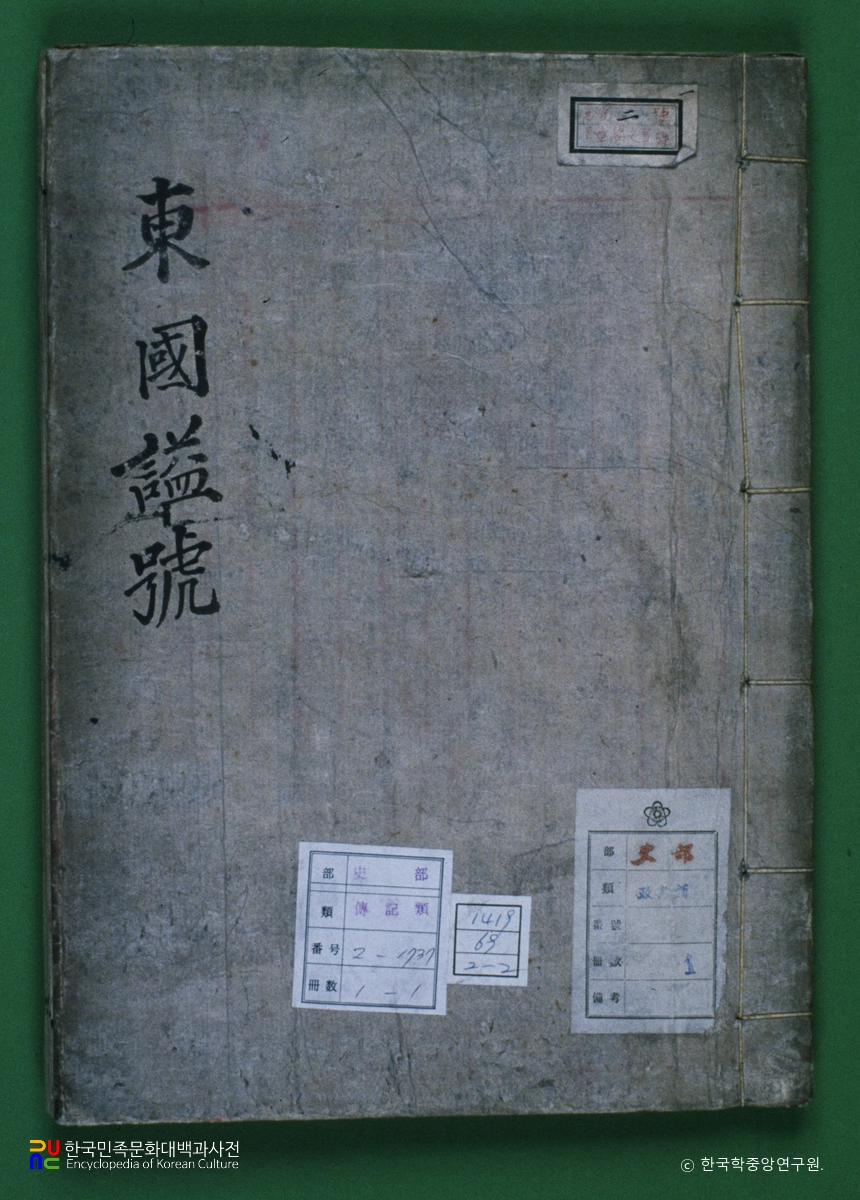 東國諡號
二
部 史部
類 傳記類
番号 2-1737
冊数 1-1
1419
69
2-2
部 史部
類
番號
冊数 1
備考
한국민족문화대백과사전
Encyclopedia of Korean Culture
ⓒ 한국학중앙연구원.